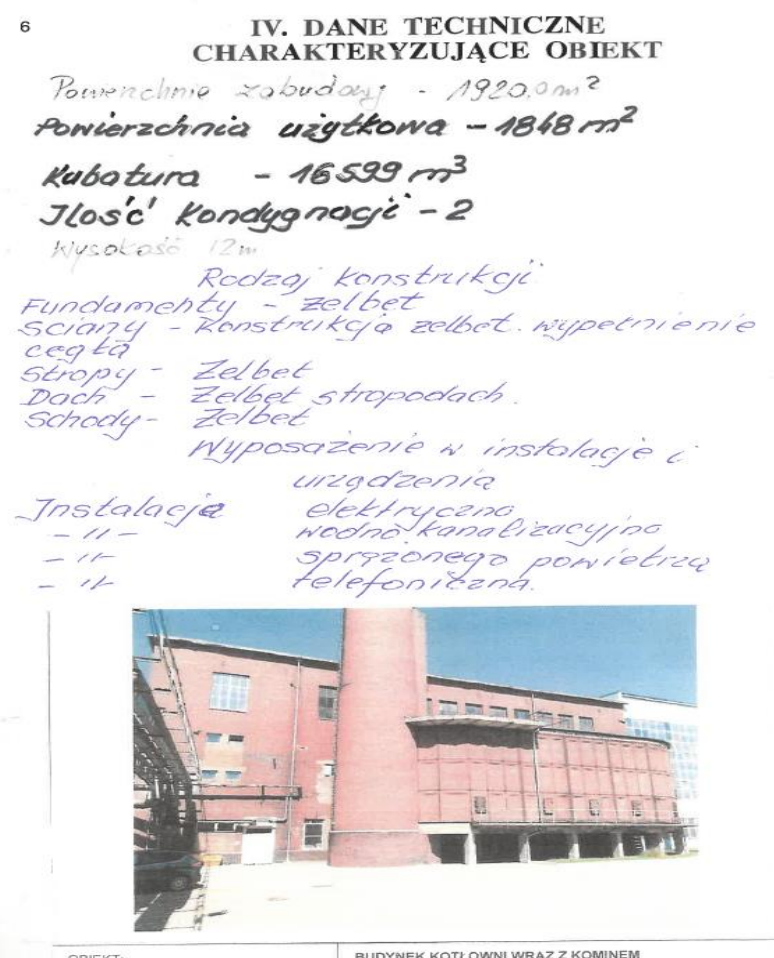 6
IV. DANE TECHNICZNE
CHARAKTERYZUJĄCE OBIEKT
Powierzchnia zabudowy - 1920,0 m²
Powierzchnia użytkowa - 1848 m²
Kubatura - 16599 m³
Ilość kondygnacji - 2
Wysokość 12m
Rodzaj konstrukcji
Fundamenty - żelbet
Sciany - Konstrukcja żelbet. wypełnienie
cegłą
Stropy - Żelbet
Dach - Żelbet stropodach.
Schody - Żelbet
Wyposażenie w instalacje i
urządzenia
Instalacja elektryczna
- 11 - wodno kanalizacyjna
- 11 - sprężonego powietrza
- 11 - telefoniczna.
OBIEKT: BUDYNEK KOTŁOWNI WRAZ Z KOMINEM